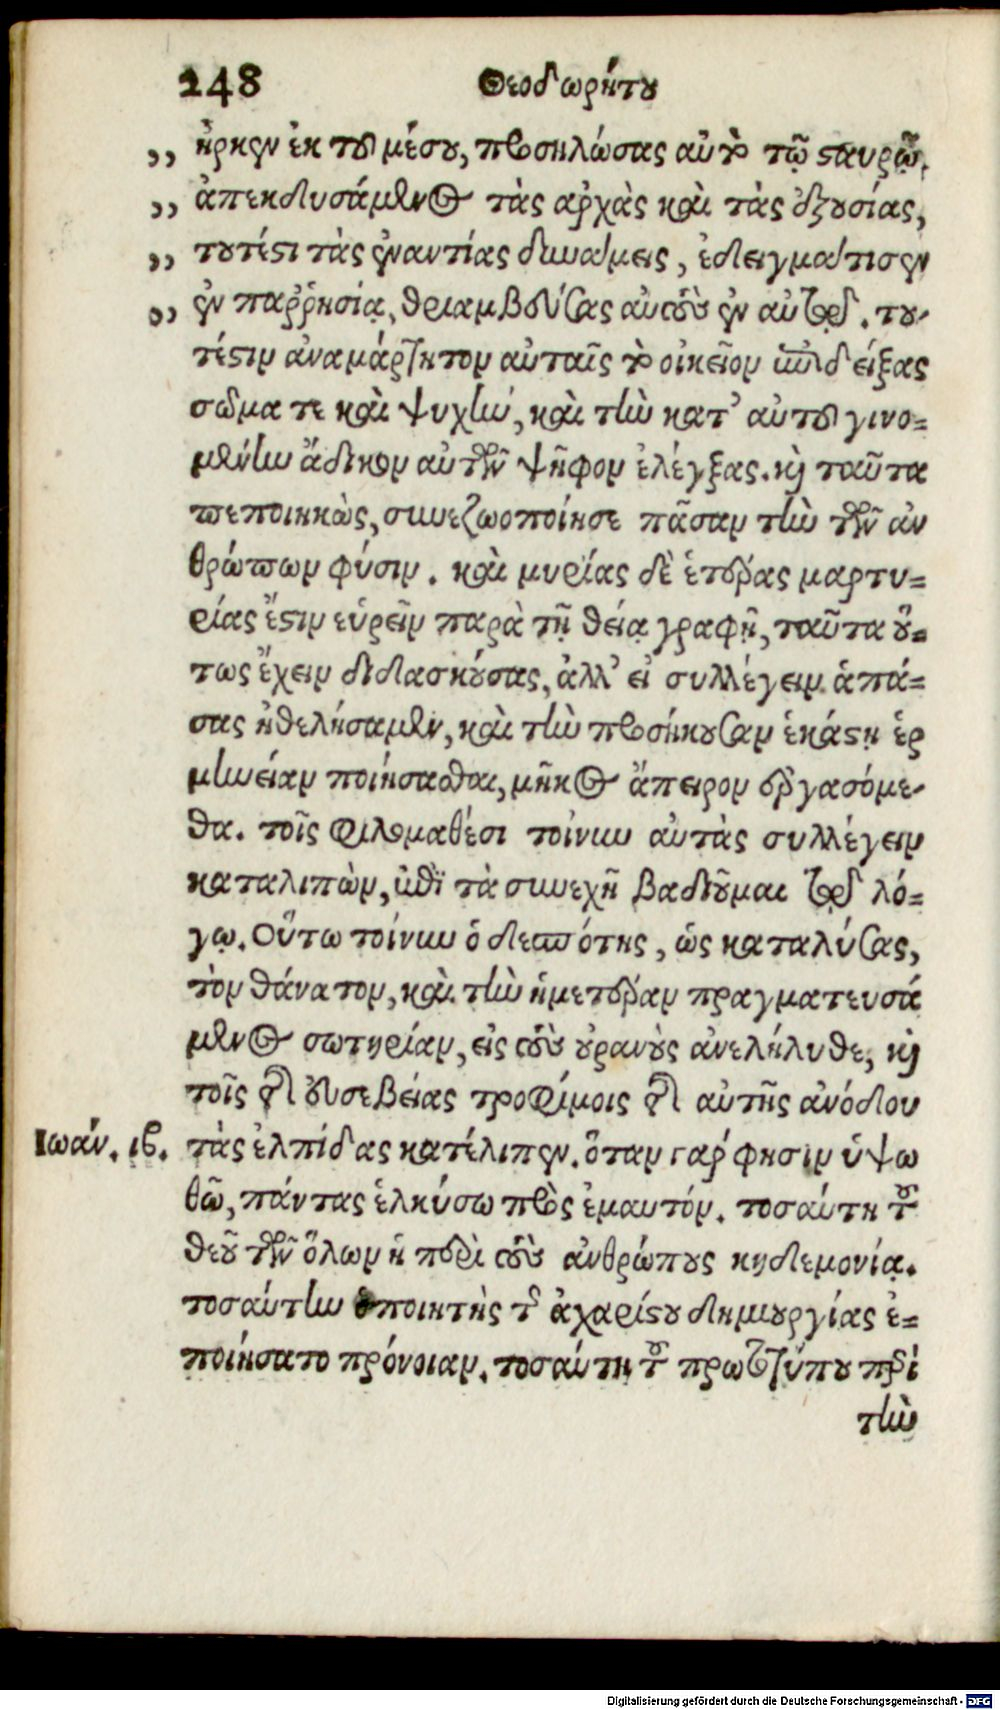 248 Θεοδωρήτου
,, ἦρκεν ἐκ τοῦ μέσου, προσηλώσας αὐτὸ τῷ σαυρῷ,
,, ἀπεκδυσάμενος τὰς ἀρχὰς καὶ τὰς ἐξουσίας,
,, τουτέστι τὰς ἐναντίας δυνάμεις, ἐδειγμάτισεν
,, ἐν παῤῥησίᾳ, θριαμβεύσας αὐτοὺς ἐν αὐτῷ. του-
τέστιν ἀναμάρτητον αὐταῖς τὸ οἰκεῖον ὑποδείξας
σῶμα τε καὶ ψυχὴν, καὶ τὴν κατ’ αὐτοῦ γινο=
μένην ἄδικον αὐτῶν ψῆφον ἐλέγξας. καὶ ταῦτα
πεποιηκὼς, συνεζωοποίησε πᾶσαν τὴν τῶν ἀν
θρώπων φύσιν. καὶ μυρίας δὲ ἑτέρας μαρτυ=
ρίας ἔστιν εὑρεῖν παρὰ τῇ θείᾳ γραφῇ, ταῦτα οὕ=
τως ἔχειν διδασκούσας, ἀλλ’ εἰ συλλέγειν ἁπά=
σας ἠθελήσαμεν, καὶ τὴν προσήκουσαν ἑκάστῃ ἑρ
μηνείαν ποιήσασθαι, μῆκος ἄπειρον ἐργασόμε-
θα. τοῖς φιλομαθέσι τοίνυν αὐτὰς συλλέγειν
καταλιπὼν, ἐπὶ τὰ συνεχῆ βαδιοῦμαι τῷ λό=
γῳ. Οὕτω τοίνυν ὁ δεσπότης, ὡς καταλύσας,
τὸν θάνατον, καὶ τὴν ἡμετέραν πραγματευσά
μενος σωτηρίαν, εἰς τοὺς οὐρανοὺς ἀνελήλυθε, καὶ
τοῖς τῆς εὐσεβείας τροφίμοις τῆς αὐτῆς ἀνόδου
Ἰωάν. ιβ. τὰς ἐλπίδας κατέλιπεν. ὅταν γάρ φησιν ὑψω
θῶ, πάντας ἑλκύσω πρὸς ἐμαυτόν. τοσαύτη τοῦ
θεοῦ τῶν ὅλων ἡ περὶ τοὺς ἀνθρώπους κηδεμονία.
τοσαύτην ὁ ποιητὴς τῆς ἀχαρίστου δημιουργίας ἐ=
ποιήσατο πρόνοιαν. τοσαύτη τοῦ πρωτοτύπου περὶ
τὴν
Digitalisierung gefördert durch die Deutsche Forschungsgemeinschaft - DFG